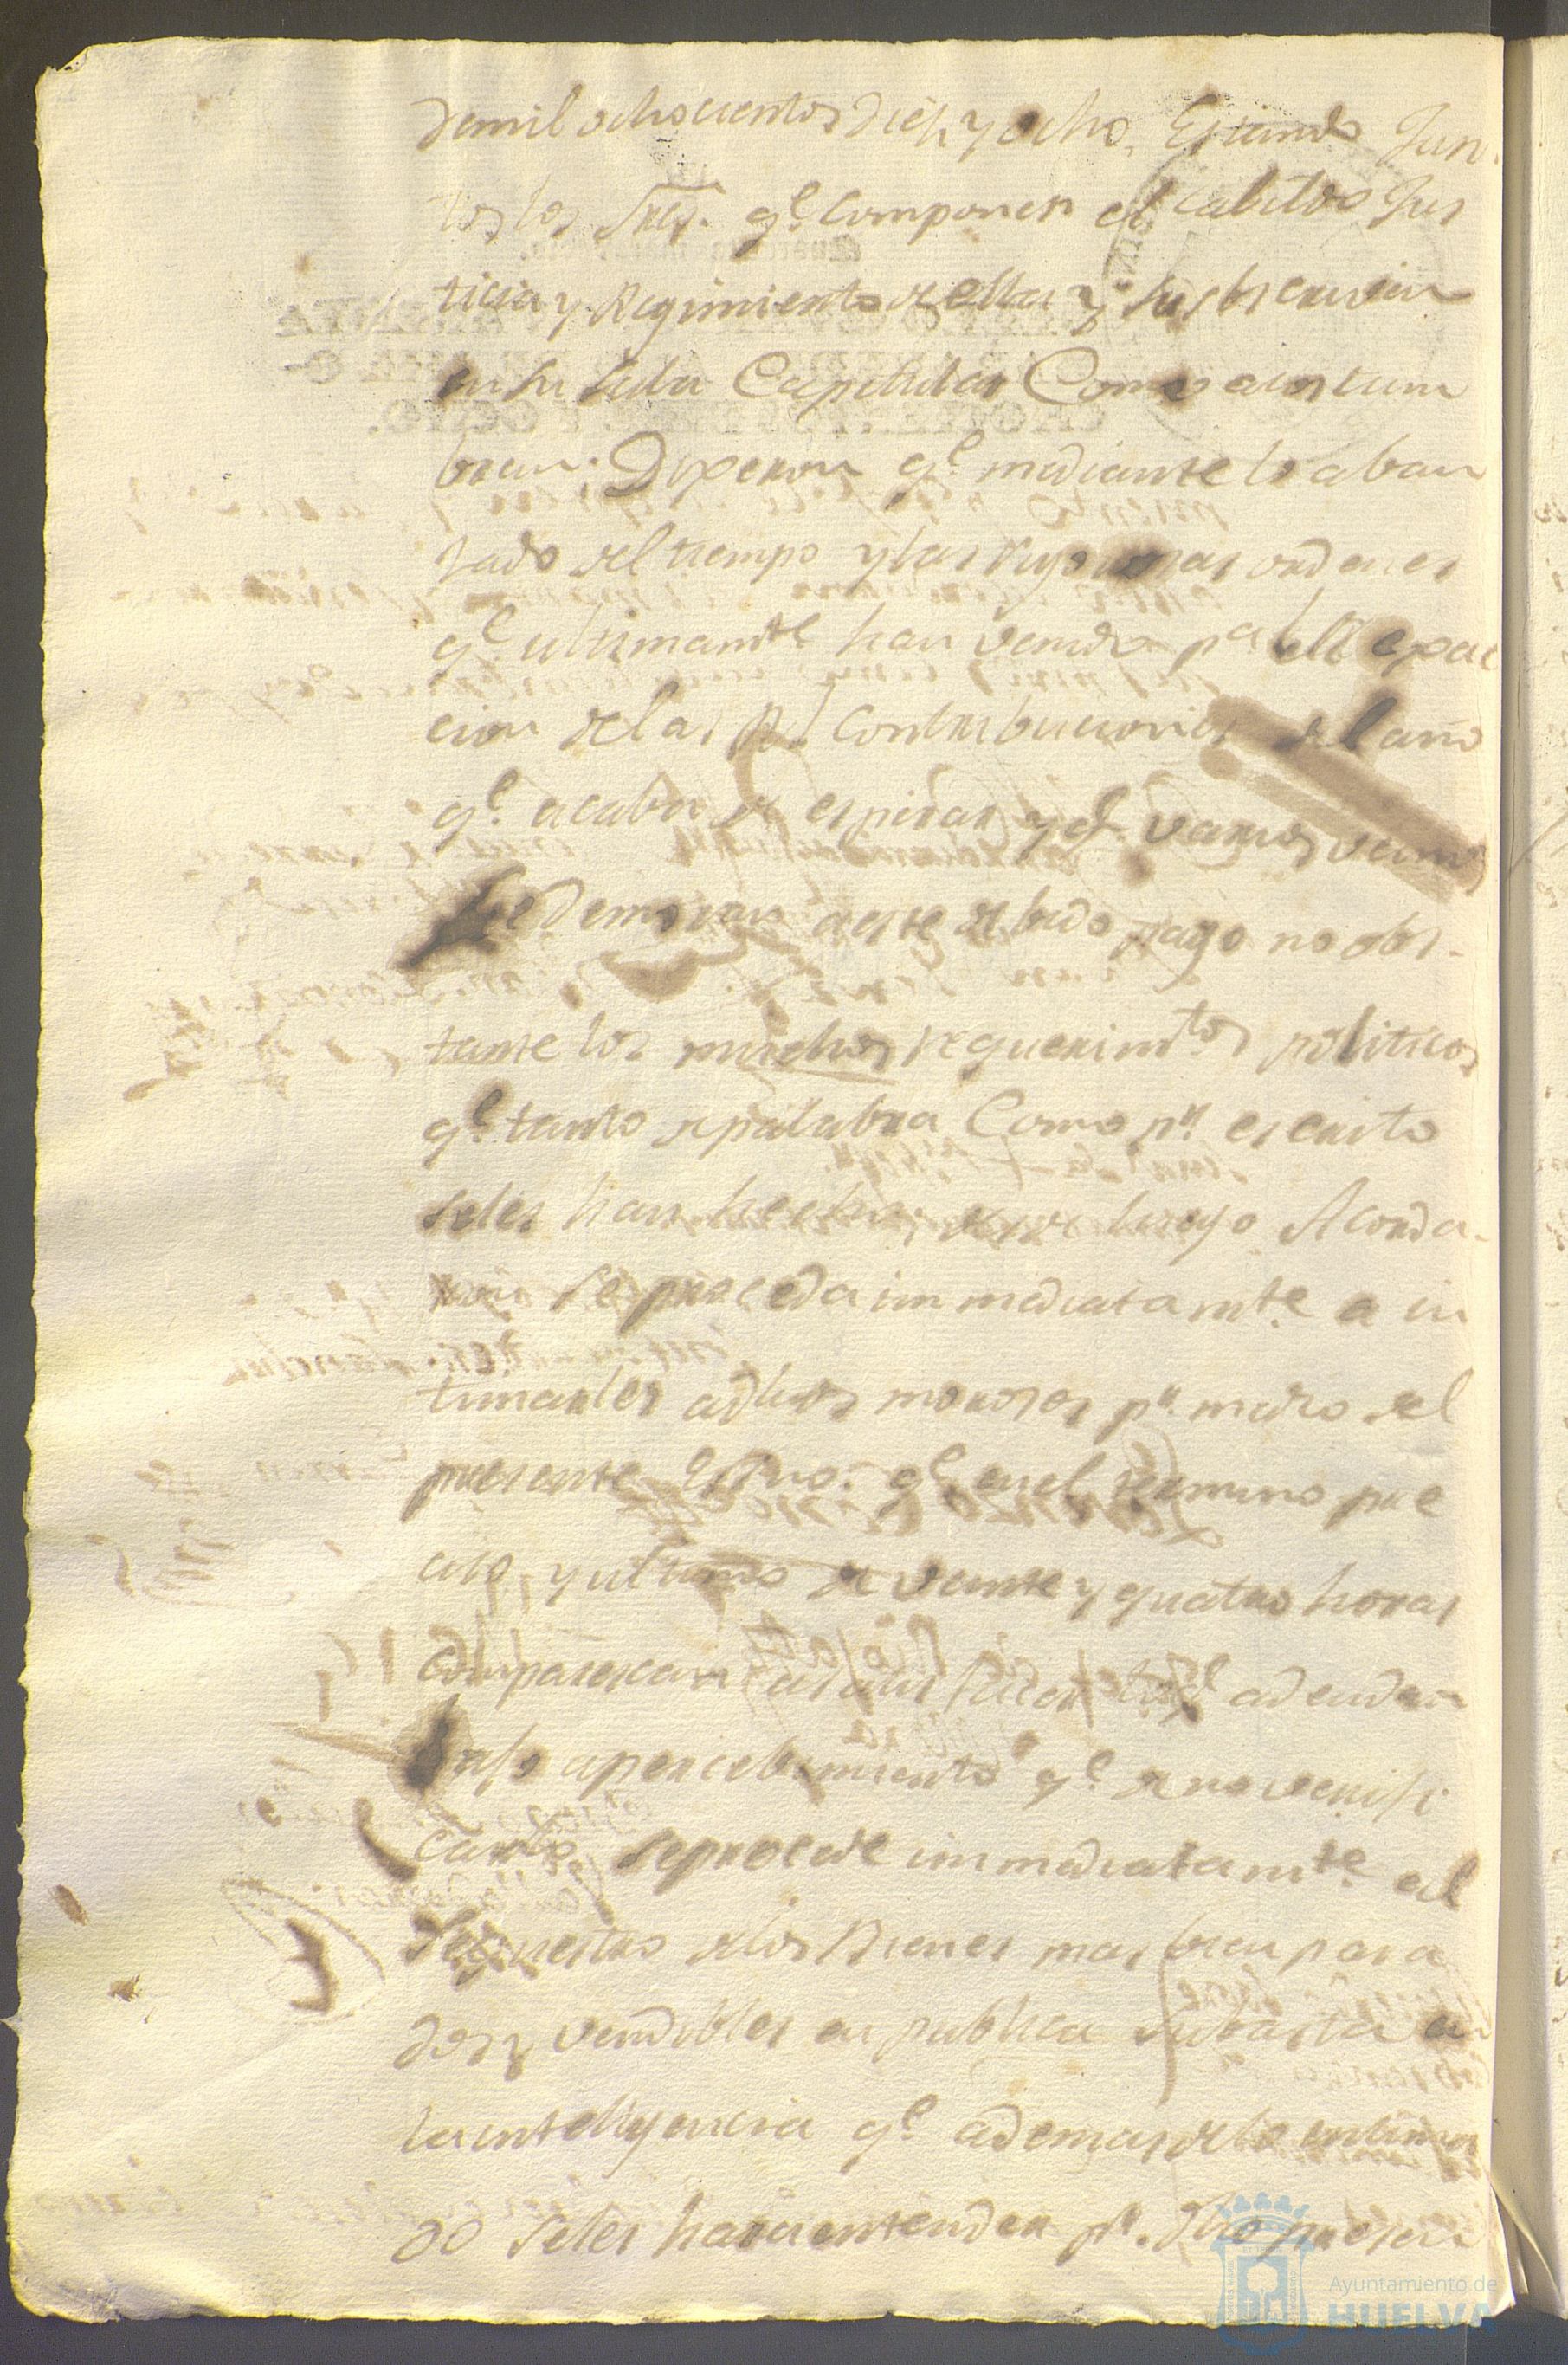 de mil ochocientos diez y ocho, Estando Jun
tos los Sres. qe. componen el cabildo Jus
ticia y Regimiento de ella y
en su sala Capitular Como acostum
bran. Dixeron qe. mediante lo aban
zado del tiempo y las ordenes
qe. ultimamte han venido pa. la exac
cion de las Rs. contribuciones del año
qe. acaba de espirar y qe. varios vecinos
se demoran a este debido pago no obs-
tante los muchos requerimtos. politicos
qe. tanto de palabra Como pr. escrito
seles han hecho; desde luego Acorda-
ron se proceda immediatamte. a in
timarles a dhos morosos pr. medio del
presente Essno. qe. en el termino pre
ciso, y ultimo de veinte y quatro horas
comparescan a satisfacer lo qe. adeudan
bajo apercebimiento qe. de no verifi
carlo se procede immediatamte. al
Sequestro de los Bienes mas bien para
dos y vendibles en publica subasta en
la inteligencia qe. ademas de lo intima
do seles hará entender pr. dho presen
Ayuntamiento de
HUELVA